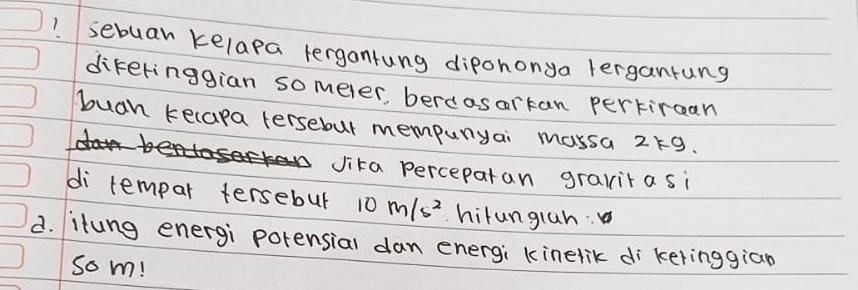 1. sebuah kelapa tergantung dipohonya tergantung
diketinggian 50 meter, berdasarkan perkiraan
buah kelapa tersebut mempunyai massa 2 kg.
dan berdasarkan Jika percepatan gravitasi
di tempat tersebut 10 m/s². hitunglah :
a. itung energi potensial dan energi kinetik di ketinggian
50 m!